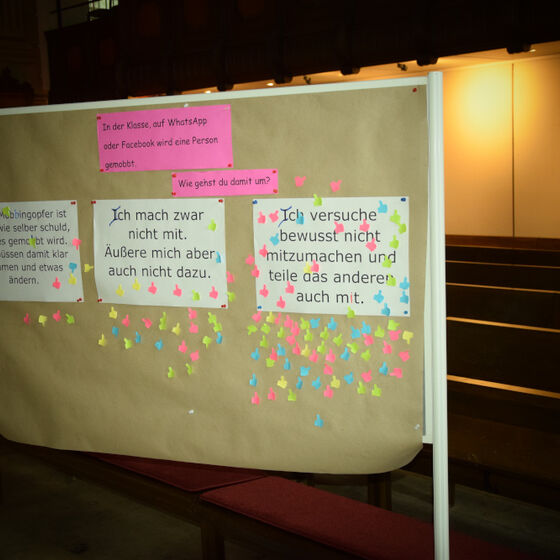 In der Klasse, auf WhatsApp
oder Facebook wird eine Person
gemobbt.
Wie gehst du damit um?
Mobbingopfer ist
selber schuld,
gemobbt wird.
damit klar
und etwas
ändern.
Ich mach zwar
nicht mit.
Äußere mich aber
auch nicht dazu.
Ich versuche
bewusst nicht
mitzumachen und
teile das anderen
auch mit.